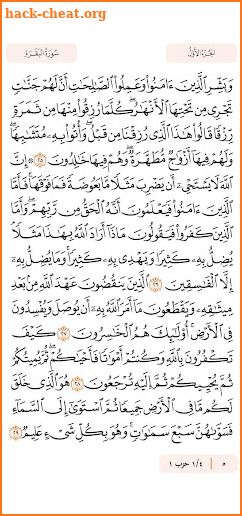 hack-cheat.org
سورة البقرة
الجزء الأول
وَبَشِّرِ الَّذِينَ ءَامَنُوا وَعَمِلُوا الصَّٰلِحَٰتِ أَنَّ لَهُمْ جَنَّٰتٍ
تَجْرِي مِن تَحْتِهَا الْأَنْهَٰرُ ۖ كُلَّمَا رُزِقُوا مِنْهَا مِن ثَمَرَةٍ
رِّزْقًا قَالُوا هَٰذَا الَّذِي رُزِقْنَا مِن قَبْلُ ۖ وَأُتُوا بِهِ مُتَشَٰبِهًا ۖ
وَلَهُمْ فِيهَا أَزْوَٰجٌ مُّطَهَّرَةٌ ۖ وَهُمْ فِيهَا خَٰلِدُونَ ٢٥ ۞ إِنَّ
اللَّهَ لَا يَسْتَحْيِۦ أَن يَضْرِبَ مَثَلًا مَّا بَعُوضَةً فَمَا فَوْقَهَا ۚ فَأَمَّا
الَّذِينَ ءَامَنُوا فَيَعْلَمُونَ أَنَّهُ الْحَقُّ مِن رَّبِّهِمْ ۖ وَأَمَّا
الَّذِينَ كَفَرُوا فَيَقُولُونَ مَاذَا أَرَادَ اللَّهُ بِهَٰذَا مَثَلًا ۘ
يُضِلُّ بِهِ كَثِيرًا وَيَهْدِي بِهِ كَثِيرًا ۚ وَمَا يُضِلُّ بِهِ
إِلَّا الْفَٰسِقِينَ ٢٦ الَّذِينَ يَنقُضُونَ عَهْدَ اللَّهِ مِن بَعْدِ
مِيثَٰقِهِ وَيَقْطَعُونَ مَا أَمَرَ اللَّهُ بِهِ أَن يُوصَلَ وَيُفْسِدُونَ
فِي الْأَرْضِ ۚ أُولَٰئِكَ هُمُ الْخَٰسِرُونَ ٢٧ كَيْفَ
تَكْفُرُونَ بِاللَّهِ وَكُنتُمْ أَمْوَٰتًا فَأَحْيَٰكُمْ ۖ ثُمَّ يُمِيتُكُمْ
ثُمَّ يُحْيِيكُمْ ثُمَّ إِلَيْهِ تُرْجَعُونَ ٢٨ هُوَ الَّذِي خَلَقَ
لَكُم مَّا فِي الْأَرْضِ جَمِيعًا ثُمَّ اسْتَوَىٰ إِلَى السَّمَاءِ
فَسَوَّىٰهُنَّ سَبْعَ سَمَٰوَٰتٍ ۚ وَهُوَ بِكُلِّ شَيْءٍ عَلِيمٌ ٢٩
٥
١/٤ حزب ١
hack-cheat.org